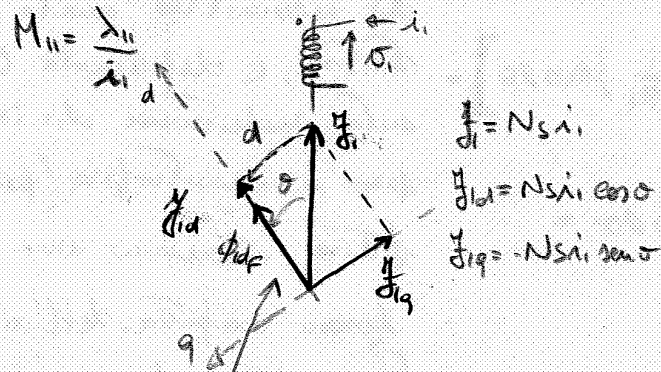 M₁₁ = λ₁₁ / i₁
i₁
v₁
d
d
ℱ₁
ϑ
ℱ₁d
ϕ₁dF
ℱ₁q
q
ℱ₁ = Ns i₁
ℱ₁d = Ns i₁ cosϑ
ℱ₁q = -Ns i₁ senϑ